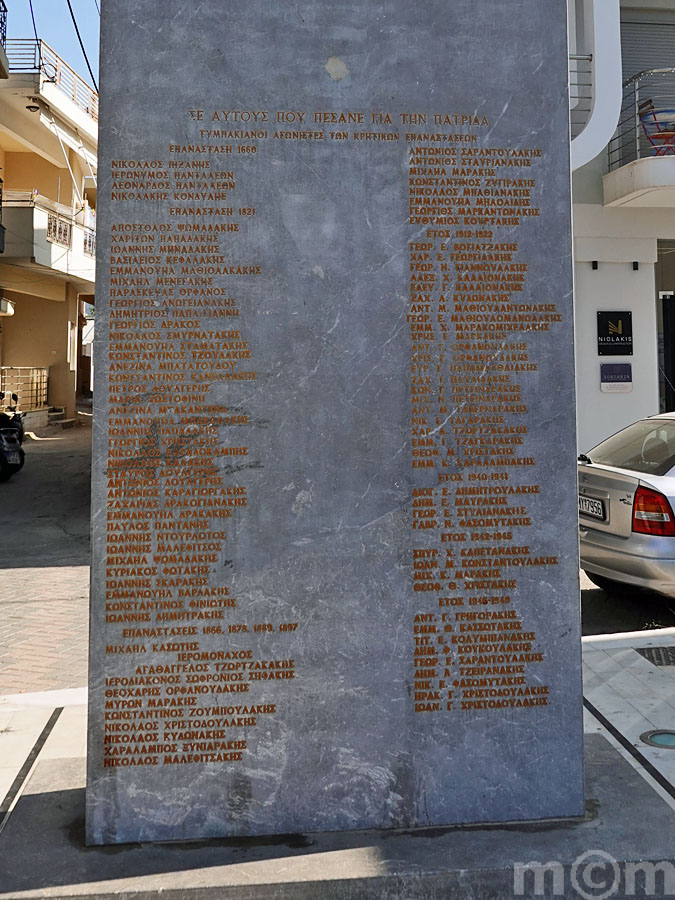 ΣΕ ΑΥΤΟΥΣ ΠΟΥ ΠΕΣΑΝΕ ΓΙΑ ΤΗΝ ΠΑΤΡΙΔΑ
ΤΥΜΠΑΚΙΑΝΟΙ ΑΓΩΝΙΣΤΕΣ ΤΩΝ ΚΡΗΤΙΚΩΝ ΕΠΑΝΑΣΤΑΣΕΩΝ
ΕΠΑΝΑΣΤΑΣΗ 1660
ΝΙΚΟΛΑΟΣ
ΙΕΡΩΝΥΜΟΣ ΠΑΝΤΑΛΕΩΝ
ΛΕΟΝΑΡΔΟΣ ΠΑΝΤΑΛΕΩΝ
ΝΙΚΟΛΑΚΗΣ ΚΟΝΔΥΛΗΣ
ΕΠΑΝΑΣΤΑΣΗ 1821
ΑΠΟΣΤΟΛΟΣ ΨΩΜΑΔΑΚΗΣ
ΧΑΡΙΤΩΝ ΠΑΠΑΔΑΚΗΣ
ΙΩΑΝΝΗΣ ΜΗΝΑΔΑΚΗΣ
ΒΑΣΙΛΕΙΟΣ ΚΕΦΑΛΑΚΗΣ
ΕΜΜΑΝΟΥΗΛ ΜΑΘΙΟΛΑΚΑΚΗΣ
ΜΙΧΑΗΛ ΜΕΝΕΓΑΚΗΣ
ΠΑΡΑΣΚΕΥΑΣ ΟΡΦΑΝΟΣ
ΓΕΩΡΓΙΟΣ ΑΝΩΓΕΙΑΝΑΚΗΣ
ΔΗΜΗΤΡΙΟΣ ΠΑΠΑ-ΓΙΑΝΝΗ
ΓΕΩΡΓΙΟΣ ΔΡΑΚΟΣ
ΝΙΚΟΛΑΟΣ ΣΜΥΡΝΑΤΑΚΗΣ
ΕΜΜΑΝΟΥΗΛ ΣΤΑΜΑΤΑΚΗΣ
ΚΩΝΣΤΑΝΤΙΝΟΣ ΤΖΟΥΛΑΚΗΣ
ΑΝΕΖΙΝΑ ΜΠΑΤΑΓΟΥΔΟΥ
ΚΩΝΣΤΑΝΤΙΝΟΣ
ΠΕΤΡΟΣ ΛΟΥΛΓΕΡΗΣ
ΜΑΡΙΑ
ΑΝΕΖΙΝΑ
ΕΜΜΑΝΟΥΗΛ
ΙΩΑΝΝΗΣ ΠΑΠΑΔΑΚΗΣ
ΓΕΩΡΓΙΟΣ
ΝΙΚΟΛΑΟΣ
ΝΙΚΟΛΑΟΣ
ΣΤΑΥΡΟΣ ΛΟΥΛΓΕΡΗΣ
ΑΝΤΩΝΙΟΣ ΛΟΥΛΓΕΡΗΣ
ΑΝΤΩΝΙΟΣ ΚΑΡΑΓΙΩΡΓΑΚΗΣ
ΖΑΧΑΡΙΑΣ ΔΡΑΚΟΓΙΑΝΑΚΗΣ
ΕΜΜΑΝΟΥΗΛ ΔΡΑΚΑΚΗΣ
ΠΑΥΛΟΣ ΠΑΝΤΑΝΗΣ
ΙΩΑΝΝΗΣ ΝΤΟΥΡΛΩΤΟΣ
ΙΩΑΝΝΗΣ ΜΑΛΕΦΙΤΣΟΣ
ΜΙΧΑΗΛ ΨΩΜΑΔΑΚΗΣ
ΚΥΡΙΑΚΟΣ ΦΩΤΑΚΗΣ
ΙΩΑΝΝΗΣ ΣΚΑΡΑΚΗΣ
ΕΜΜΑΝΟΥΗΛ ΒΑΡΔΑΚΗΣ
ΚΩΝΣΤΑΝΤΙΝΟΣ ΦΙΝΙΩΤΗΣ
ΙΩΑΝΝΗΣ ΔΗΜΗΤΡΑΚΗΣ
ΕΠΑΝΑΣΤΑΣΕΙΣ 1866, 1878, 1889, 1897
ΜΙΧΑΗΛ ΚΑΣΩΤΗΣ
ΙΕΡΟΜΟΝΑΧΟΣ
ΑΓΑΘΑΓΓΕΛΟΣ ΤΖΩΡΤΖΑΚΑΚΗΣ
ΙΕΡΟΔΙΑΚΟΝΟΣ ΣΩΦΡΟΝΙΟΣ ΣΗΦΑΚΗΣ
ΘΕΟΧΑΡΗΣ ΟΡΦΑΝΟΥΔΑΚΗΣ
ΜΥΡΩΝ ΜΑΡΑΚΗΣ
ΚΩΝΣΤΑΝΤΙΝΟΣ ΖΟΥΜΠΟΥΛΑΚΗΣ
ΝΙΚΟΛΑΟΣ ΧΡΙΣΤΟΔΟΥΛΑΚΗΣ
ΝΙΚΟΛΑΟΣ ΚΥΔΩΝΑΚΗΣ
ΧΑΡΑΛΑΜΠΟΣ ΞΥΝΙΑΡΑΚΗΣ
ΝΙΚΟΛΑΟΣ ΜΑΛΕΦΙΤΣΑΚΗΣ
ΑΝΤΩΝΙΟΣ ΣΑΡΑΝΤΟΥΛΑΚΗΣ
ΑΝΤΩΝΙΟΣ ΣΤΑΥΡΙΑΝΑΚΗΣ
ΜΙΧΑΗΛ ΜΑΡΑΚΗΣ
ΚΩΝΣΤΑΝΤΙΝΟΣ ΖΥΓΙΡΑΚΗΣ
ΝΙΚΟΛΑΟΣ ΜΠΑΘΙΑΝΑΚΗΣ
ΕΜΜΑΝΟΥΗΛ ΜΠΑΟΛΙΑΗΣ
ΓΕΩΡΓΙΟΣ ΜΑΡΚΑΝΤΩΝΑΚΗΣ
ΕΥΘΥΜΙΟΣ ΚΟΥΡΤΑΚΗΣ
ΕΤΟΣ 1912-1922
ΓΕΩΡ. Ε. ΒΟΓΙΑΤΖΑΚΗΣ
ΧΑΡ. Ε. ΓΕΩΡΓΙΛΑΚΗΣ
ΓΕΩΡ. Ν. ΓΙΑΝΝΟΥΛΑΚΗΣ
ΑΛΕΞ. Χ. ΚΑΛΛΙΟΝΑΚΗΣ
ΕΛΕΥ. Γ. ΚΑΛΛΙΟΝΑΚΗΣ
ΖΑΧ. Α. ΚΥΔΩΝΑΚΗΣ
ΑΝΤ. Μ. ΜΑΘΙΟΥΔΑΝΤΩΝΑΚΗΣ
ΓΕΩΡ. Ε. ΜΑΘΙΟΥΛΟΜΑΝΩΛΑΚΗΣ
ΕΜΜ. Χ. ΜΑΡΑΚΟΜΙΧΕΛΑΚΗΣ
ΧΡΗΣ. Γ. ΜΑΡΑΚΗΣ
ΑΝΤ. Γ. ΟΡΦΑΝΟΥΔΑΚΗΣ
ΟΡΦΑΝΟΥΔΑΚΗΣ
ΠΑΠΑΜΑΤΘΑΙΑΚΗΣ
ΖΑΧ.
ΚΩΝ.
ΑΝΤ. Μ.
ΝΙΚ.
ΧΑΡ. ΤΖΑΓΚΑΡΑΚΗΣ
ΕΜΜ. Γ. ΤΖΑΓΚΑΡΑΚΗΣ
ΘΕΟΦ. Μ. ΧΡΙΣΤΑΚΗΣ
ΕΜΜ. Κ. ΧΑΡΑΛΑΜΠΑΚΗΣ
ΕΤΟΣ 1940-1941
ΔΙΟΓ. Ε. ΔΗΜΗΤΡΟΥΛΑΚΗΣ
ΔΗΜ. Ε. ΜΑΥΡΑΚΗΣ
ΓΕΩΡ. Ε. ΣΤΥΛΙΑΝΑΚΗΣ
ΓΑΒΡ. Ν. ΦΑΣΟΜΥΤΑΚΗΣ
ΕΤΟΣ 1942-1945
ΣΠΥΡ. Χ. ΚΑΠΕΤΑΝΑΚΗΣ
ΙΩΑΝ. Μ. ΚΩΝΣΤΑΝΤΟΥΛΑΚΗΣ
ΜΙΧ. Κ. ΜΑΡΑΚΗΣ
ΘΕΟΦ. Θ. ΧΡΙΣΤΑΚΗΣ
ΕΤΟΣ 1945-1949
ΑΝΤ. Γ. ΓΡΗΓΟΡΑΚΗΣ
ΕΜΜ. Θ. ΚΑΣΣΩΤΑΚΗΣ
ΑΝΤ. Ε. ΚΟΛΥΜΠΑΝΑΚΗΣ
ΔΗΜ. Φ. ΚΟΥΚΟΥΛΑΚΗΣ
ΓΕΩΡ. Ε. ΣΑΡΑΝΤΟΥΛΑΚΗΣ
ΔΗΜ. Λ. ΤΖΕΙΡΑΝΑΚΗΣ
ΝΙΚ. Ε. ΦΑΣΟΜΥΤΑΚΗΣ
ΗΡΑΚ. Γ. ΧΡΙΣΤΟΔΟΥΛΑΚΗΣ
ΙΩΑΝ. Γ. ΧΡΙΣΤΟΔΟΥΛΑΚΗΣ
NIOLAKIS
7956
m©m